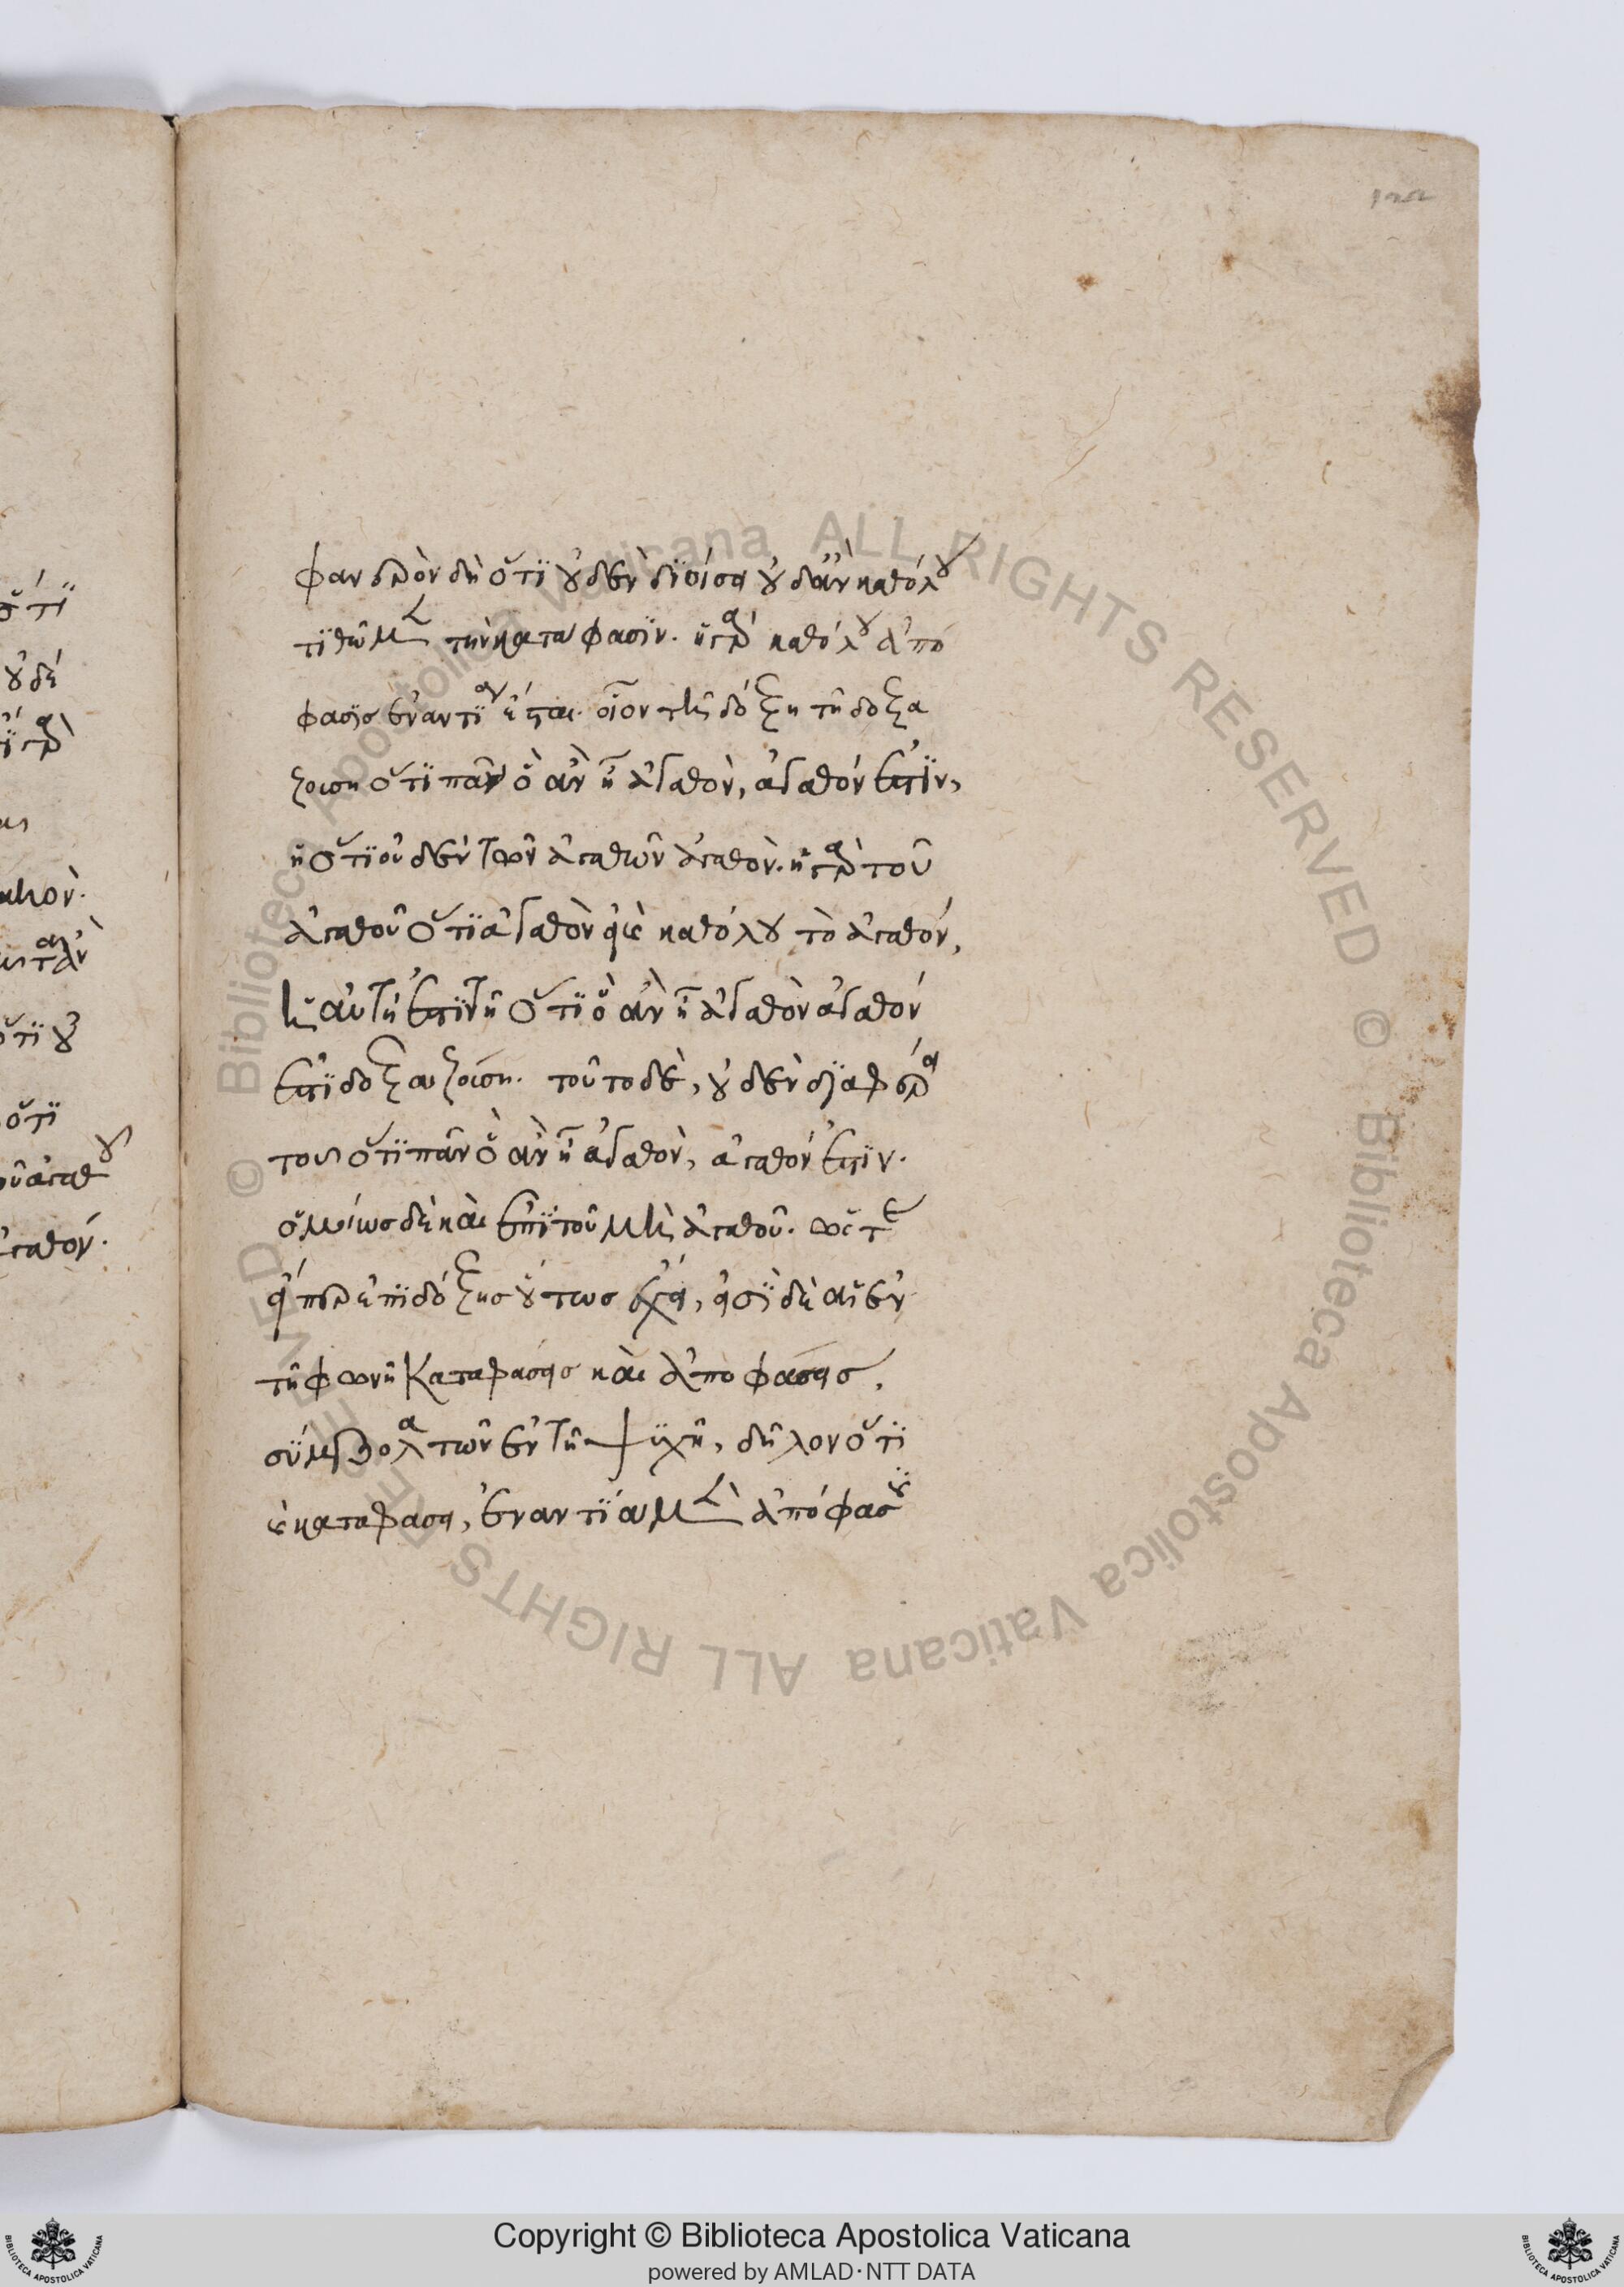 φανερὸν δὴ ὅτι οὐδὲν διοίσει οὐδ' ἂν καθόλου
τιθῶμεν τὴν κατάφασιν. ἡ γὰρ καθόλου ἀπό
φασις ἐναντία ἔσται. οἷον τῆ δόξη τῆ δοξα
ζούση ὅτι πᾶν ὃ ἂν ἦ ἀγαθὸν, ἀγαθόν ἐστιν,
ἡ ὅτι οὐδὲν τῶν ἀγαθῶν ἀγαθὸν. ἡ γὰρ τοῦ
ἀγαθοῦ ὅτι ἀγαθὸν εἰ καθόλου τὸ ἀγαθόν,
ἡ αὐτή ἐστι τῆ ὅτι ὃ ἂν ἦ ἀγαθὸν ἀγαθόν
ἐστι δοξαζούση. τοῦτο δὲ, οὐδὲν διαφέρει
του ὅτι πᾶν ὃ ἂν ἦ ἀγαθὸν, ἀγαθόν ἐστιν.
ὁμοίως δὲ καὶ ἐπὶ τοῦ μὴ ἀγαθοῦ. ὥστε
εἴπερ ἐπὶ δόξης οὕτως ἔχει, εἰσὶ δὲ αἱ ἐν
τῆ φωνῆ καταφάσεις καὶ ἀποφάσεις,
σύμβολα τῶν ἐν τῆ ψυχῆ, δῆλον ὅτι
καὶ καταφάσει, ἐναντία μὲν ἀπόφασις
ὅτι
οὐδέ
ὅτι οὐ
ὅτι
ἀγαθοῦ
ἀγαθόν.
Copyright © Biblioteca Apostolica Vaticana
powered by AMLAD·NTT DATA
© Biblioteca Apostolica Vaticana ALL RIGHTS RESERVED
© Biblioteca Apostolica Vaticana ALL RIGHTS RESERVED